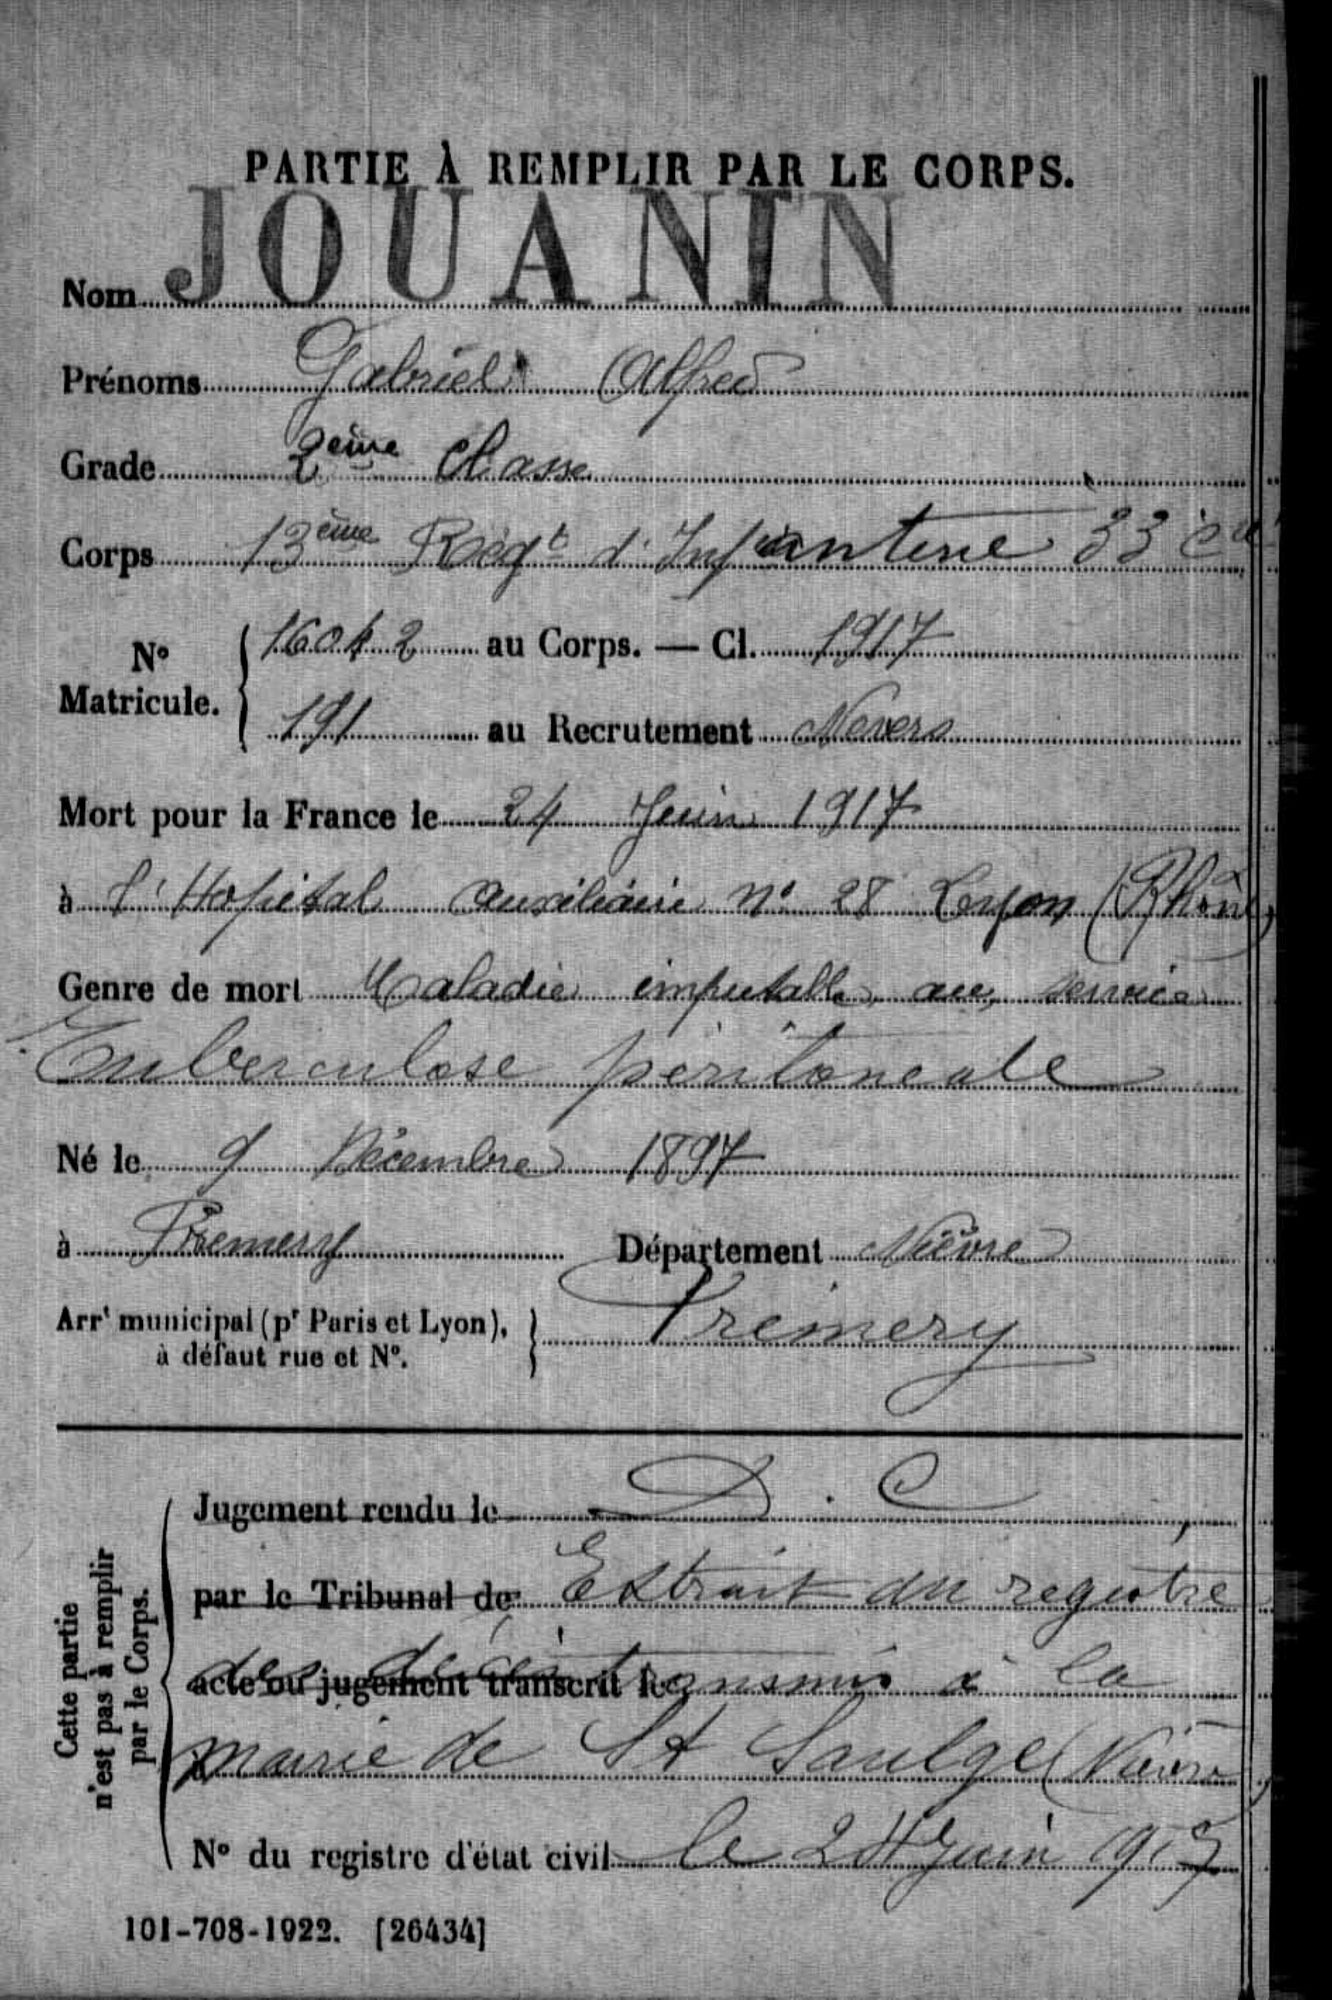 PARTIE À REMPLIR PAR LE CORPS.
Nom JOUANIN
Prénoms Gabriel Alfred
Grade 2ème Classe
Corps 13ème Régt d'Infanterie 33 Cie
N° Matricule. 16042 au Corps. — Cl. 1917
191 au Recrutement Nevers
Mort pour la France le 24 Juin 1917
à l'Hopital Auxiliaire N° 28 Lyon (Rhône)
Genre de mort Maladie imputable au service
Tuberculose péritonéale
Né le 9 Décembre 1897
à Prémery Département Nièvre
Arrt municipal (pr Paris et Lyon), à défaut rue et N°. Prémery
Cette partie n'est pas à remplir par le Corps.
Jugement rendu le D.C
par le Tribunal de Extrait du registre
acte ou jugement transcrit le des décès transmis à la
mairie de St Saulge (Nièvre)
N° du registre d'état civil le 24 Juin 1917
101-708-1922. [26434]